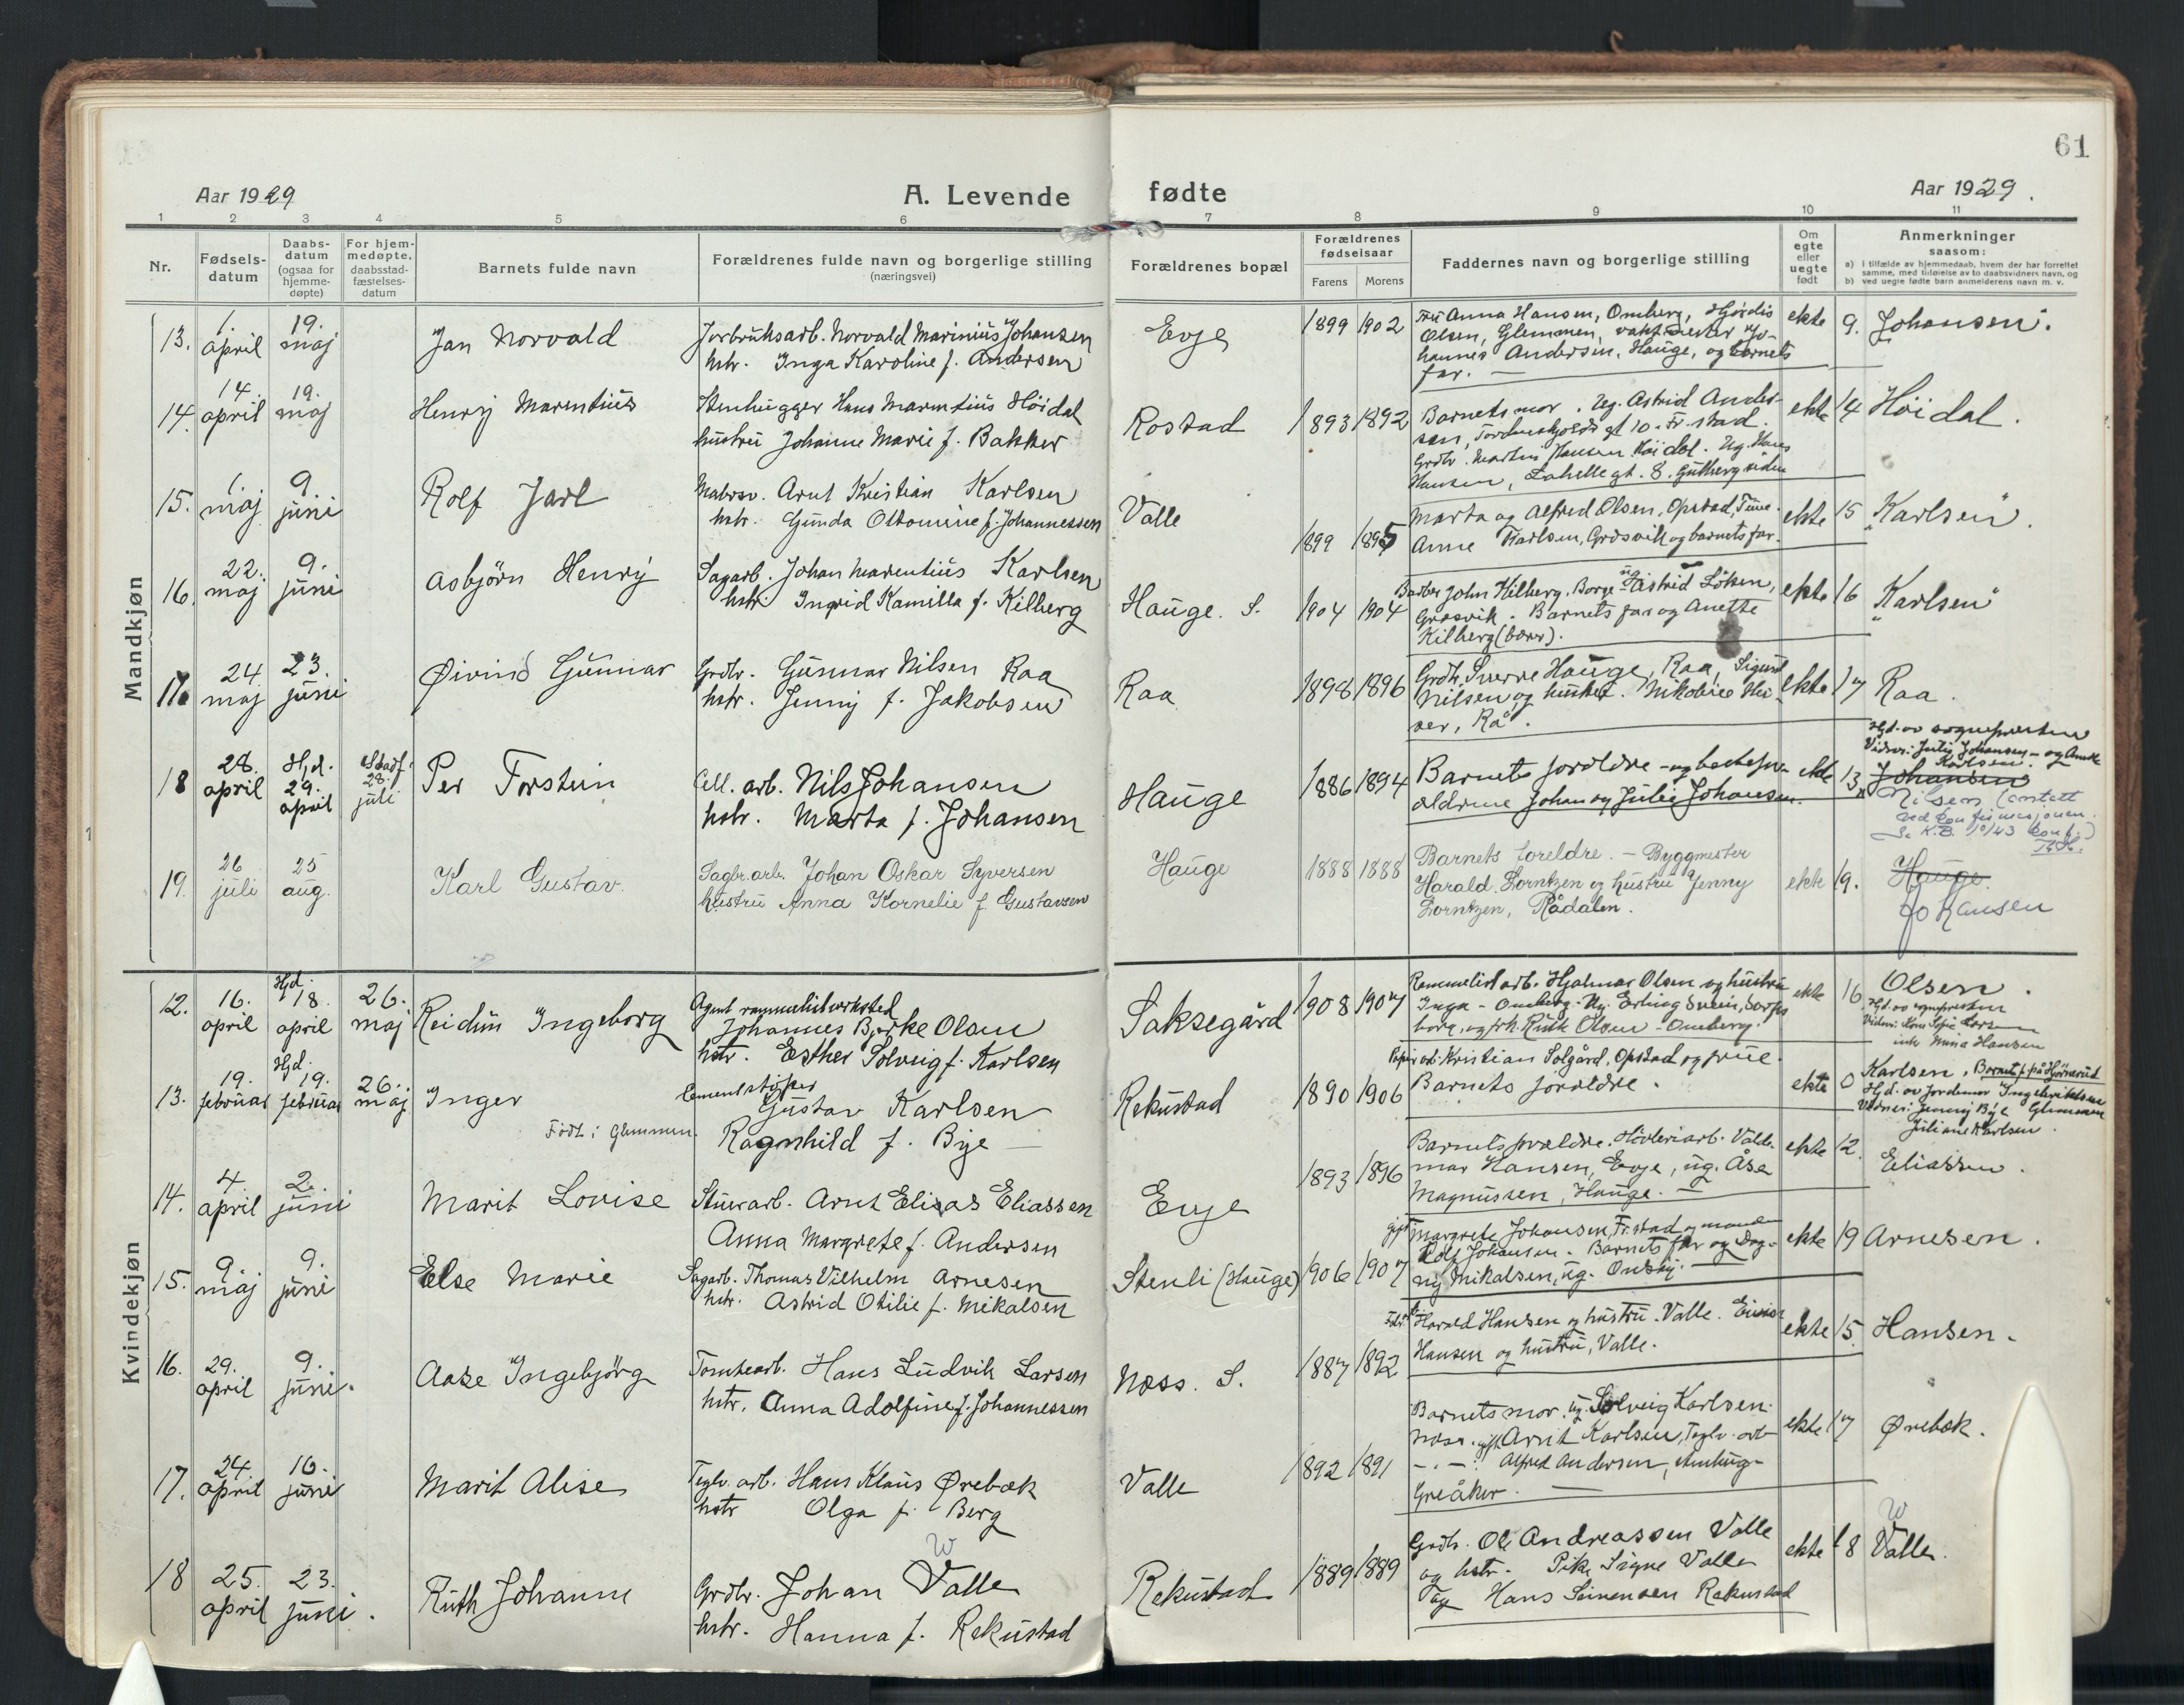 61
Aar 1929
A. Levende
fødte
Aar 1929.
1 2 3 4 5 6 7 8 9 10 11
Nr.
Fødsels-
datum
Daabs-
datum
(ogsaa for
hjemme-
døpte)
For hjem-
medøpte,
daabsstad-
fæstelses-
datum
Barnets fulde navn
Forældrenes fulde navn og borgerlige stilling
(næringsvei)
Forældrenes bopæl
Forældrenes
fødselsaar
Farens
Morens
Faddernes navn og borgerlige stilling
Om
egte
eller
uegte
født
Anmerkninger
saasom:
a) i tilfælde av hjemmedaab, hvem der har forrettet
samme, med tidøielse av to daabsvidners navn, og
b) ved uegte fødte barn anmelderens navn m. v.
Mandkjøn
13. 1. april 19. maj
Jan Norvald
Jorbruksarb. Norvald Marinius Johansen
hstr. Inga Karoline f. Andersen
Evje
1899 1902
Fru Anna Hansen, Omberg, Hjørdis
Olsen, Glemmen, vaktmester Jo-
hannes Andersen, Hauge, og barnets
far. —
ekte
9. Johansen.
14. 14. april 19. maj
Henry Marentius
Stenhugger Hans Marentius Höidal
hustru Johanne Marie f. Bakker
Rostad
1893 1892
Barnets mor. Ug. Astrid Ander-
sen, Tordenskjolds gt 10. Fr.stad.
Grdbr. Martin Hansen Höidal. Ug. Hans
Hansen, Lahelle gt. 8.
ekte
14 Höidal.
15. 1. maj 9. juni
Rolf Jarl
Arnt Kristian Karlsen
hstr. Gunda Ottomine f. Johannessen
Valle
1899 1895
Marta og Alfred Olsen, Opstad, Tune.
Anne Karlsen, Gresvik og barnets far.
ekte
15 Karlsen".
16. 22. maj 9. juni
Asbjörn Henry
Sagarb. Johan Marentius Karlsen
hstr Ingrid Kamilla f. Kilberg
Hauge. S.
1904 1904
Barber John Kilberg, Borge - ug Astrid Löken,
Gresvik. Barnets far og Anette
Kilberg (bærer).
ekte
16 Karlsen"
17. 24. maj 23. juni
Øivind Gunnar
Grdbr. Gunnar Nilsen Raa
hstr. Jenny f. Jakobsen
Raa
1898 1896
Grdb. Sverre Hauge, Raa, Sigurd
Nilsen, og hustru.
ser, Rå.
ekte
17 Raa.
18 28. april Hjd. 29. april Stadf. 28. juli
Per Torstein
Cell. arb. Nils Johansen
hstr. Marta f. Johansen
Hauge
1886 1894
Barnets foreldre - og bestefor-
eldrene Johan og Julie Johansen.
ekte
Hjd. av sognepresten
Vidner: Julie Johansen - og Anette
Karlsen.
13 Johansen
Nilsen (antatt
ved konfirmasjonen.
Se K.B. 10/43 konf.)
19. 26 juli 25 aug.
Karl Gustav.
Sagbr.arb. Johan Oskar Syversen
hustru Anna Kornelie f. Gustavsen
Hauge
1888 1888
Barnets foreldre. - Byggmester
Harald Lorntzen og hustru Jenny
Lorntzen, Rådalen.
ekte
19. Hauge.
Johansen
Kvindekjøn
12. 16. april Hjd. 18. april 26. maj
Reidun Ingeborg
Agent rammelistverksted
Johannes Bjerke Olsen
hstr. Esther Solveig f. Karlsen
Saksegård
1908 1907
Rammelistarb. Hjalmar Olsen og hustru
Inga - Omberg. Ug. Erling Svein, Sarps
borg, og frk. Ruth Olsen - Omberg.
ekte
16 Olsen.
Hjd. av sognepresten
Vidner:
enke Mina Hansen
13. 19. februar Hjd. 19. februar 26. maj
Inger
Födt i Glemmen.
Cementstøper
Gustav Karlsen
Ragnhild f. Bye —
Rekustad
1890 1906
Papirarb. Kristian Solgård, Opstad og frue.
Barnets foreldre.
ekte
0 Karlsen.
Hjd. av Jordmor
Vidner: Jenny Bye Glemmen
Juliane Karlsen.
14. 4. april 2. juni
Marit Lovise
Stuerarb. Arnt Elisas Eliassen
Anna Margrete f. Andersen
Evje
1893 1896
Barnets foreldre. Høvleriarb. Valde-
mar Hansen, Evje, ug. Åse
Magnussen, Hauge. —
ekte
12. Eliassen.
15. 9. maj 9. juni
Else Marie
Sagarb. Thomas Vilhelm Arnesen
hstr. Astrid Otilie f. Mikalsen
Stenli (Hauge)
1906 1907
gift Margrete Johansen, Fr.stad og manden
Rolf Johansen. Barnets far og Dag-
ny Mikalsen, ug. Onsøy. —
ekte
19 Arnesen.
16. 29. april 9. juni.
Aase Ingebjörg
Tomtearb. Hans Ludvik Larsen
hstr. Anna Adolfine f. Johannessen
Næss. S.
1887 1892
Harald Hansen og hustru. Valle. Einar
Hansen og hustru, Valle.
ekte
15 Hansen.
17. 24. april 16. juni
Marit Alise
Teglv. arb. Hans Klaus Ørebæk
hstr Olga f. Berg
Valle
1892 1891
Barnets mor. ug. Solveig Karlsen.
Næss. gift Arnt Karlsen, Teglv. arb
— . — . Alfred Andersen, stenhug-
Greåker. —
ekte
17 Ørebæk.
18 25. april 23. juni.
Ruth Johanne
W
Grdbr. Johan Valle
hstr. Hanna f. Rekustad
Rekustad
1889 1889
Grdb. Ole Andreassen Valle
og hstr. Pike Signe Valle
Hans Simensen Rekustad
ekte
W
18 Valle.